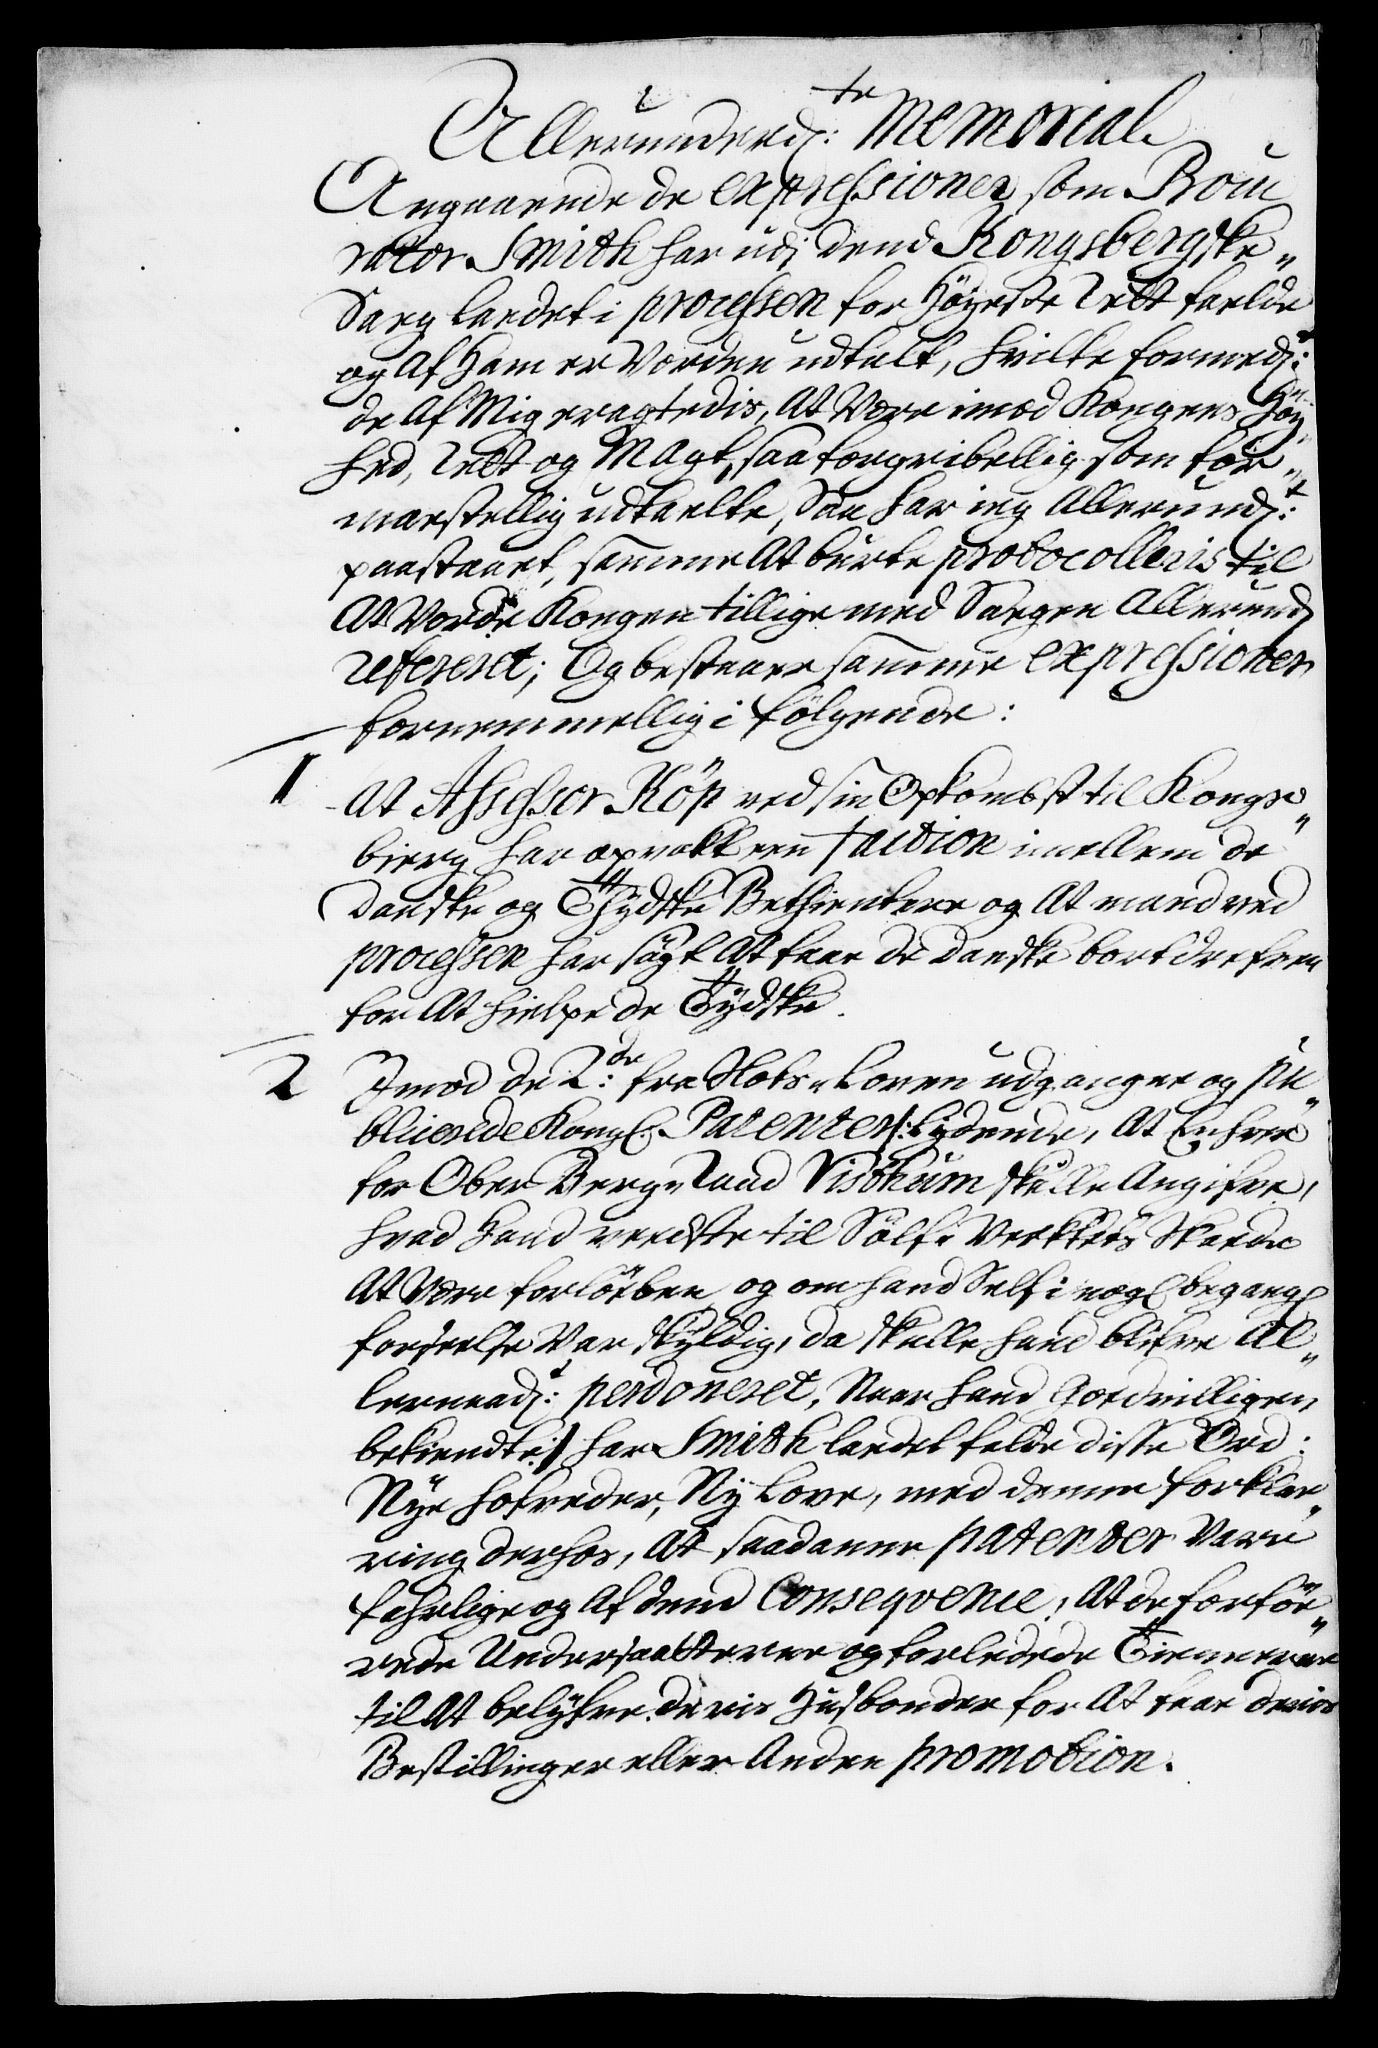 Allerunderd: te Memorial
Angaaende de expressioner som Procu
rator Smith har udi dend Kongsbergske„
Sag ladet i processen for Höyeste Rett falde
og af Ham er Vorden udtalt, hvilke formed:t
de af Mig eragtedis, at Være imod Kongens Höy„
hed, Rett og Magt, saa forgribellig som for„
mastellig udtalte, Saa har ieg Allerund:t
paastaaet, samme at burte protocolleris til
at Vorde Kongen tillige med Sagen Allerund:
refereret; Og bestaaer samme expressioner
fornemmellig i fölgende:
1 At Assessor Röp ved sin Opkomst til Kongs„
bierg har opvakt een faction imellem de
Danske og Tydske Betientere og at mand ved
processen har sögt at faae de Danske bortdrefven
for at hielpe de Tydske.
2 Imod de 2:de fra Slots Loven udgangne og pu„
blicerede Kongl. Patenter /: lydende, at Enhver
for Ober Berg Raad Visthum skulle Angifve,
hvad hand veedste til Sölf Verkkets Skade
at Være forlöben og om hand Self i nogl begangl
forseelse Var skyldig, da skulle hand blifve Al„
lernaad:t perdoneret, Naar hand Goedvilligen
bekiendte :/ har Smith ladet falde disse Ord:
Nye hofveder, Ny Love, med denne forkla„
ring derhos, at saadanne patenter Vare
fahrlige og af dend Consequence, at de forför„
rede Undersaatterne og forledede Tienerne
til at belyfve deris Husbonder for at faae deris
Bestillinger eller Anden promotion.